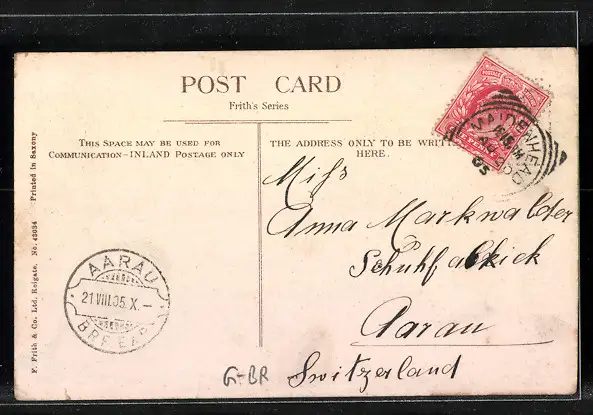 POST CARD
Frith's Series
THIS SPACE MAY BE USED FOR
COMMUNICATION-INLAND POSTAGE ONLY
THE ADDRESS ONLY TO BE WRITTEN
HERE.
MAIDENHEAD
AU
05
Miss
Anna Markwalder
Schuhfabrick
Aarau
Switzerland
AARAU
21 VIII.05.X.-
G-BR
F. Frith & Co. Ltd. Reigate. No. 43034 Printed in Saxony